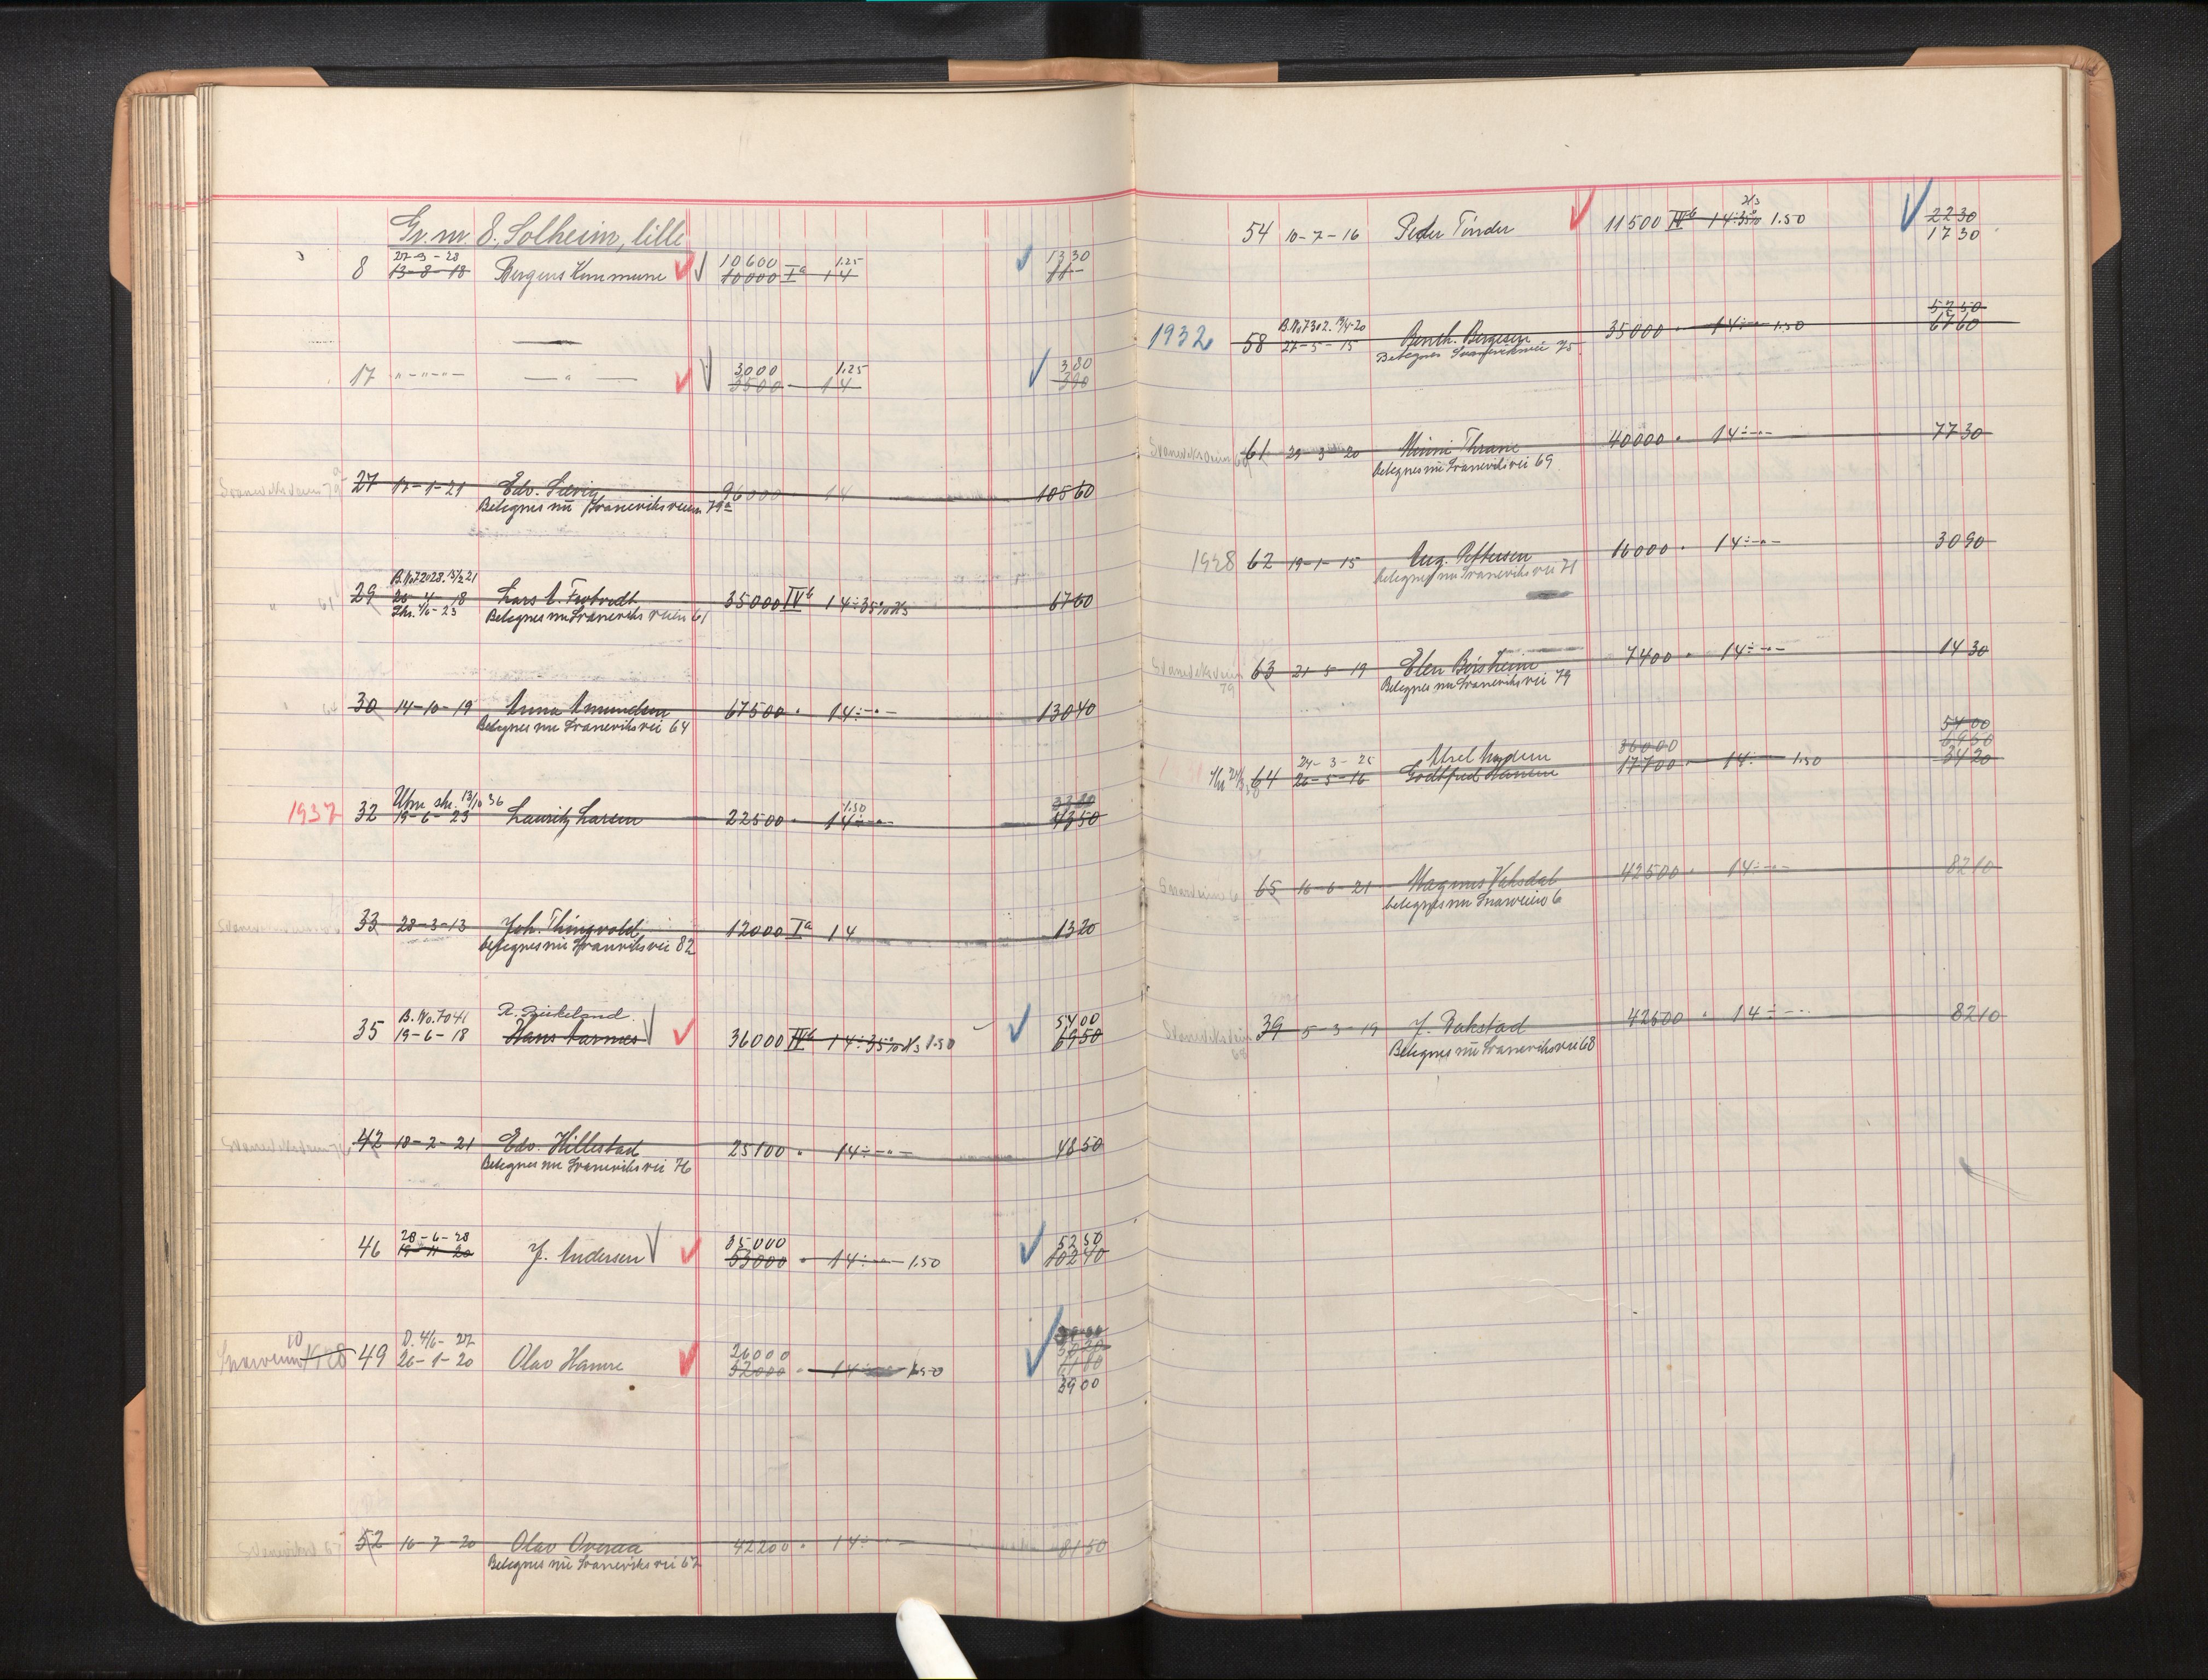 Gr. nr. 8, Solheim, lille
27-3-28 10600 1.25 1330
8 13-8-18 Bergens Kommune 10000 Ia 14 11-
3000 1.25 380
17 -"-"-"- — " — 3500 - 14 390
27 17-1-21 Edv. 96000 " 14 10560
Betegnes nu Svaneviksveien 79a
B.No 72028. 21
29 25-4-18 Lars 35000 IVb 14÷35% 6760
4/6-23 Betegnes nu Svaneviksveien 61
30 14-10-19 Anna Amundsen 67500 " 14÷-"- 13040
Betegnes nu Svaneviksvei 64
13/10 36 1.50
1937 32 19-6-23 Lauritz Larsen 22500 " 14÷-"- 4350
33 28-3-13 Joh. Thingvold 12000 Ia 14 1320
betegnes nu Svaneviksvei 82
B.No. 7041 R. Birkeland 5400
35 19-6-18 Hans 36000 IVb 14÷35% 1.50 6950
42 18-2-21 Edv. Hillestad 25100 " 14÷-"- 4850
Betegnes nu Svaneviksvei 76
28-6-28 35000 5250
46 19-11-20 J. Andersen 53000 " 14÷-"- 1.50 10240
10
D. 4/6-27 26000
49 26-1-20 Olav Hamre 32000 " 14 1.50 6180
3900
52 16-7-20 Olav Overaa 42200 " 14÷-"- 8150
Betegnes nu Svaneviksvei 67
2230
54 10-7-16 Peder Tinder 11500 IVb 14÷35% 1.50 1730
B.No 7302. 20 5250
1932 58 27-5-15 Benth. Bergesen 35000 " 14÷-"- 1.50 6760
Betegnes Svaneviksvei 75
Svaneviksveien 69 61 29-3-20 Minni Thrane 40000 " 14÷-"- 7730
betegnes nu Svaneviksvei 69
1928 62 19-1-15 Aug. Pettersen 16000 " 14÷-"- 3090
betegnes nu Svaneviksvei 71
Svaneviksveien 79 63 21-5-19 Elen Børsheim 7400 " 14÷-"- 1430
Betegnes nu Svaneviksvei 79
5400
24-3-25 Aksel 36000 6950
64 26-5-16 Godtfred Hansen 17700 " 14÷ - 1.50 3420
65 16-6-21 Magnus Vaksdal 42500 " 14÷-"- 8210
betegnes nu Snarveien 6
Svaneviksveien 68 39 5-3-19 J. Bakstad 42500 " 14÷-"- 8210
Betegnes nu Svaneviksvei 68